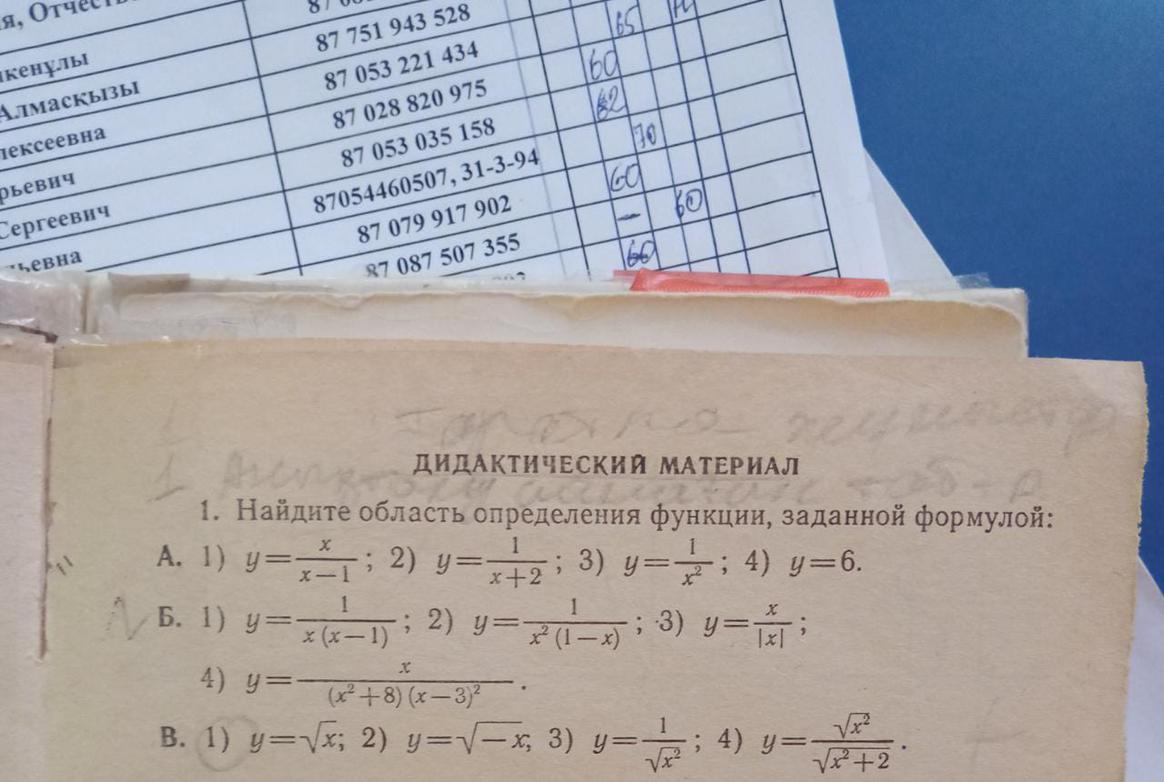 я, Отчест
87 751 943 528 65
кенұлы 87 053 221 434 60
Алмасқызы 87 028 820 975 62
лексеевна 87 053 035 158 70
рьевич 87054460507, 31-3-94 60
Сергеевич 87 079 917 902 – 60
ьевна 87 087 507 355 60
ДИДАКТИЧЕСКИЙ МАТЕРИАЛ
1. Найдите область определения функции, заданной формулой:
А. 1) y=x/(x−1); 2) y=1/(x+2); 3) y=1/x²; 4) y=6.
Б. 1) y=1/(x(x−1)); 2) y=1/(x²(1−x)); 3) y=x/|x|;
4) y=x/((x²+8)(x−3)²).
В. 1) y=√x; 2) y=√−x; 3) y=1/√x²; 4) y=√x²/√(x²+2).